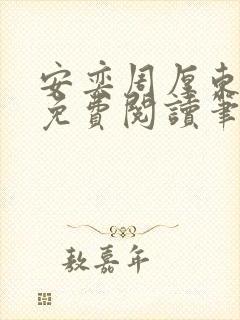 安奕周厘东
免費閱讀筆
敖嘉年